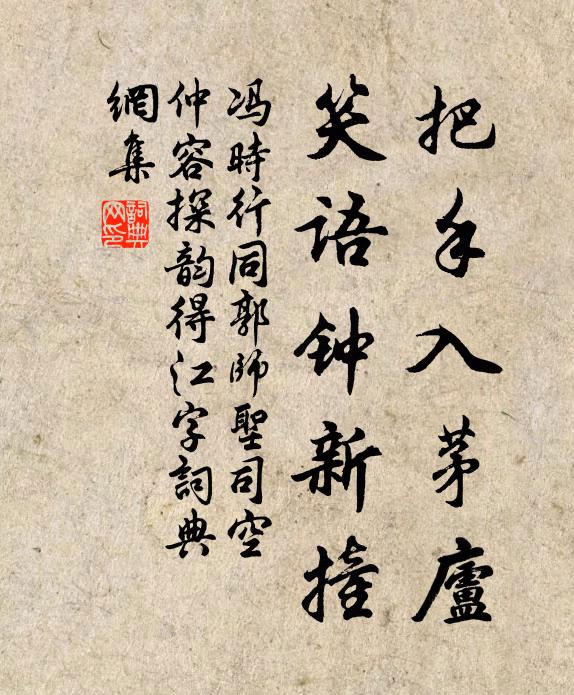 把手入茅廬
笑语钟新撞
冯時行同郭師聖司空
仲容探韵得江字詞典
網集
詞典
网印